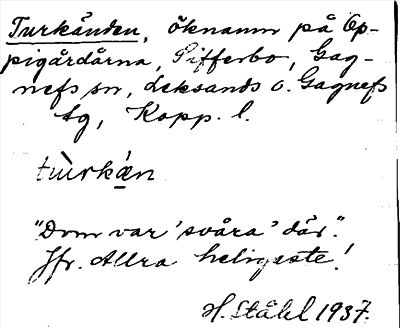 Turkånden, öknamn på Op-
pigårdårna, Sifferbo, Gag-
nefs sn, Leksands o. Gagnefs
tg, Kopp. l.
"Dom var 'svåra' där."
Jfr. Allra heligeste!
H. Ståhl 1937.